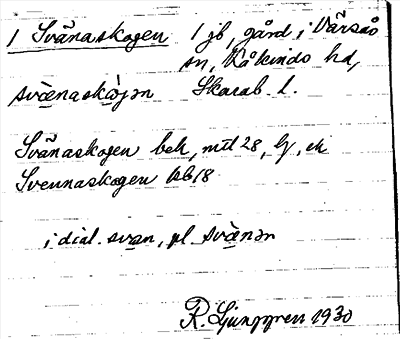 1 Svänaskogen 1 jb, gård i Värsås
sn, Kåkinds hd,
svä̀enaskò̱jən Skarab. l.
Svänaskogen bek, mtl 28, Gj, ek
Svennaskogen kb 18
i dial. svan, pl. svä̀nən
R. Ljunggren 1930